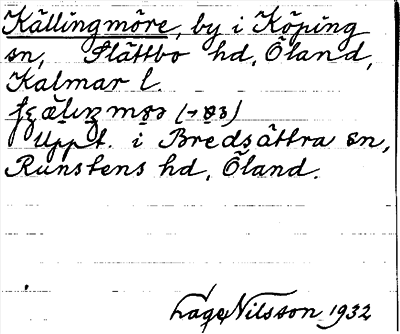 Källingmöre, by i Köping
sn, Slättbo hd, Öland,
Kalmar l.
Uppt. i Bredsättra sn,
Runstens hd, Öland.
Lage Nilsson 1932